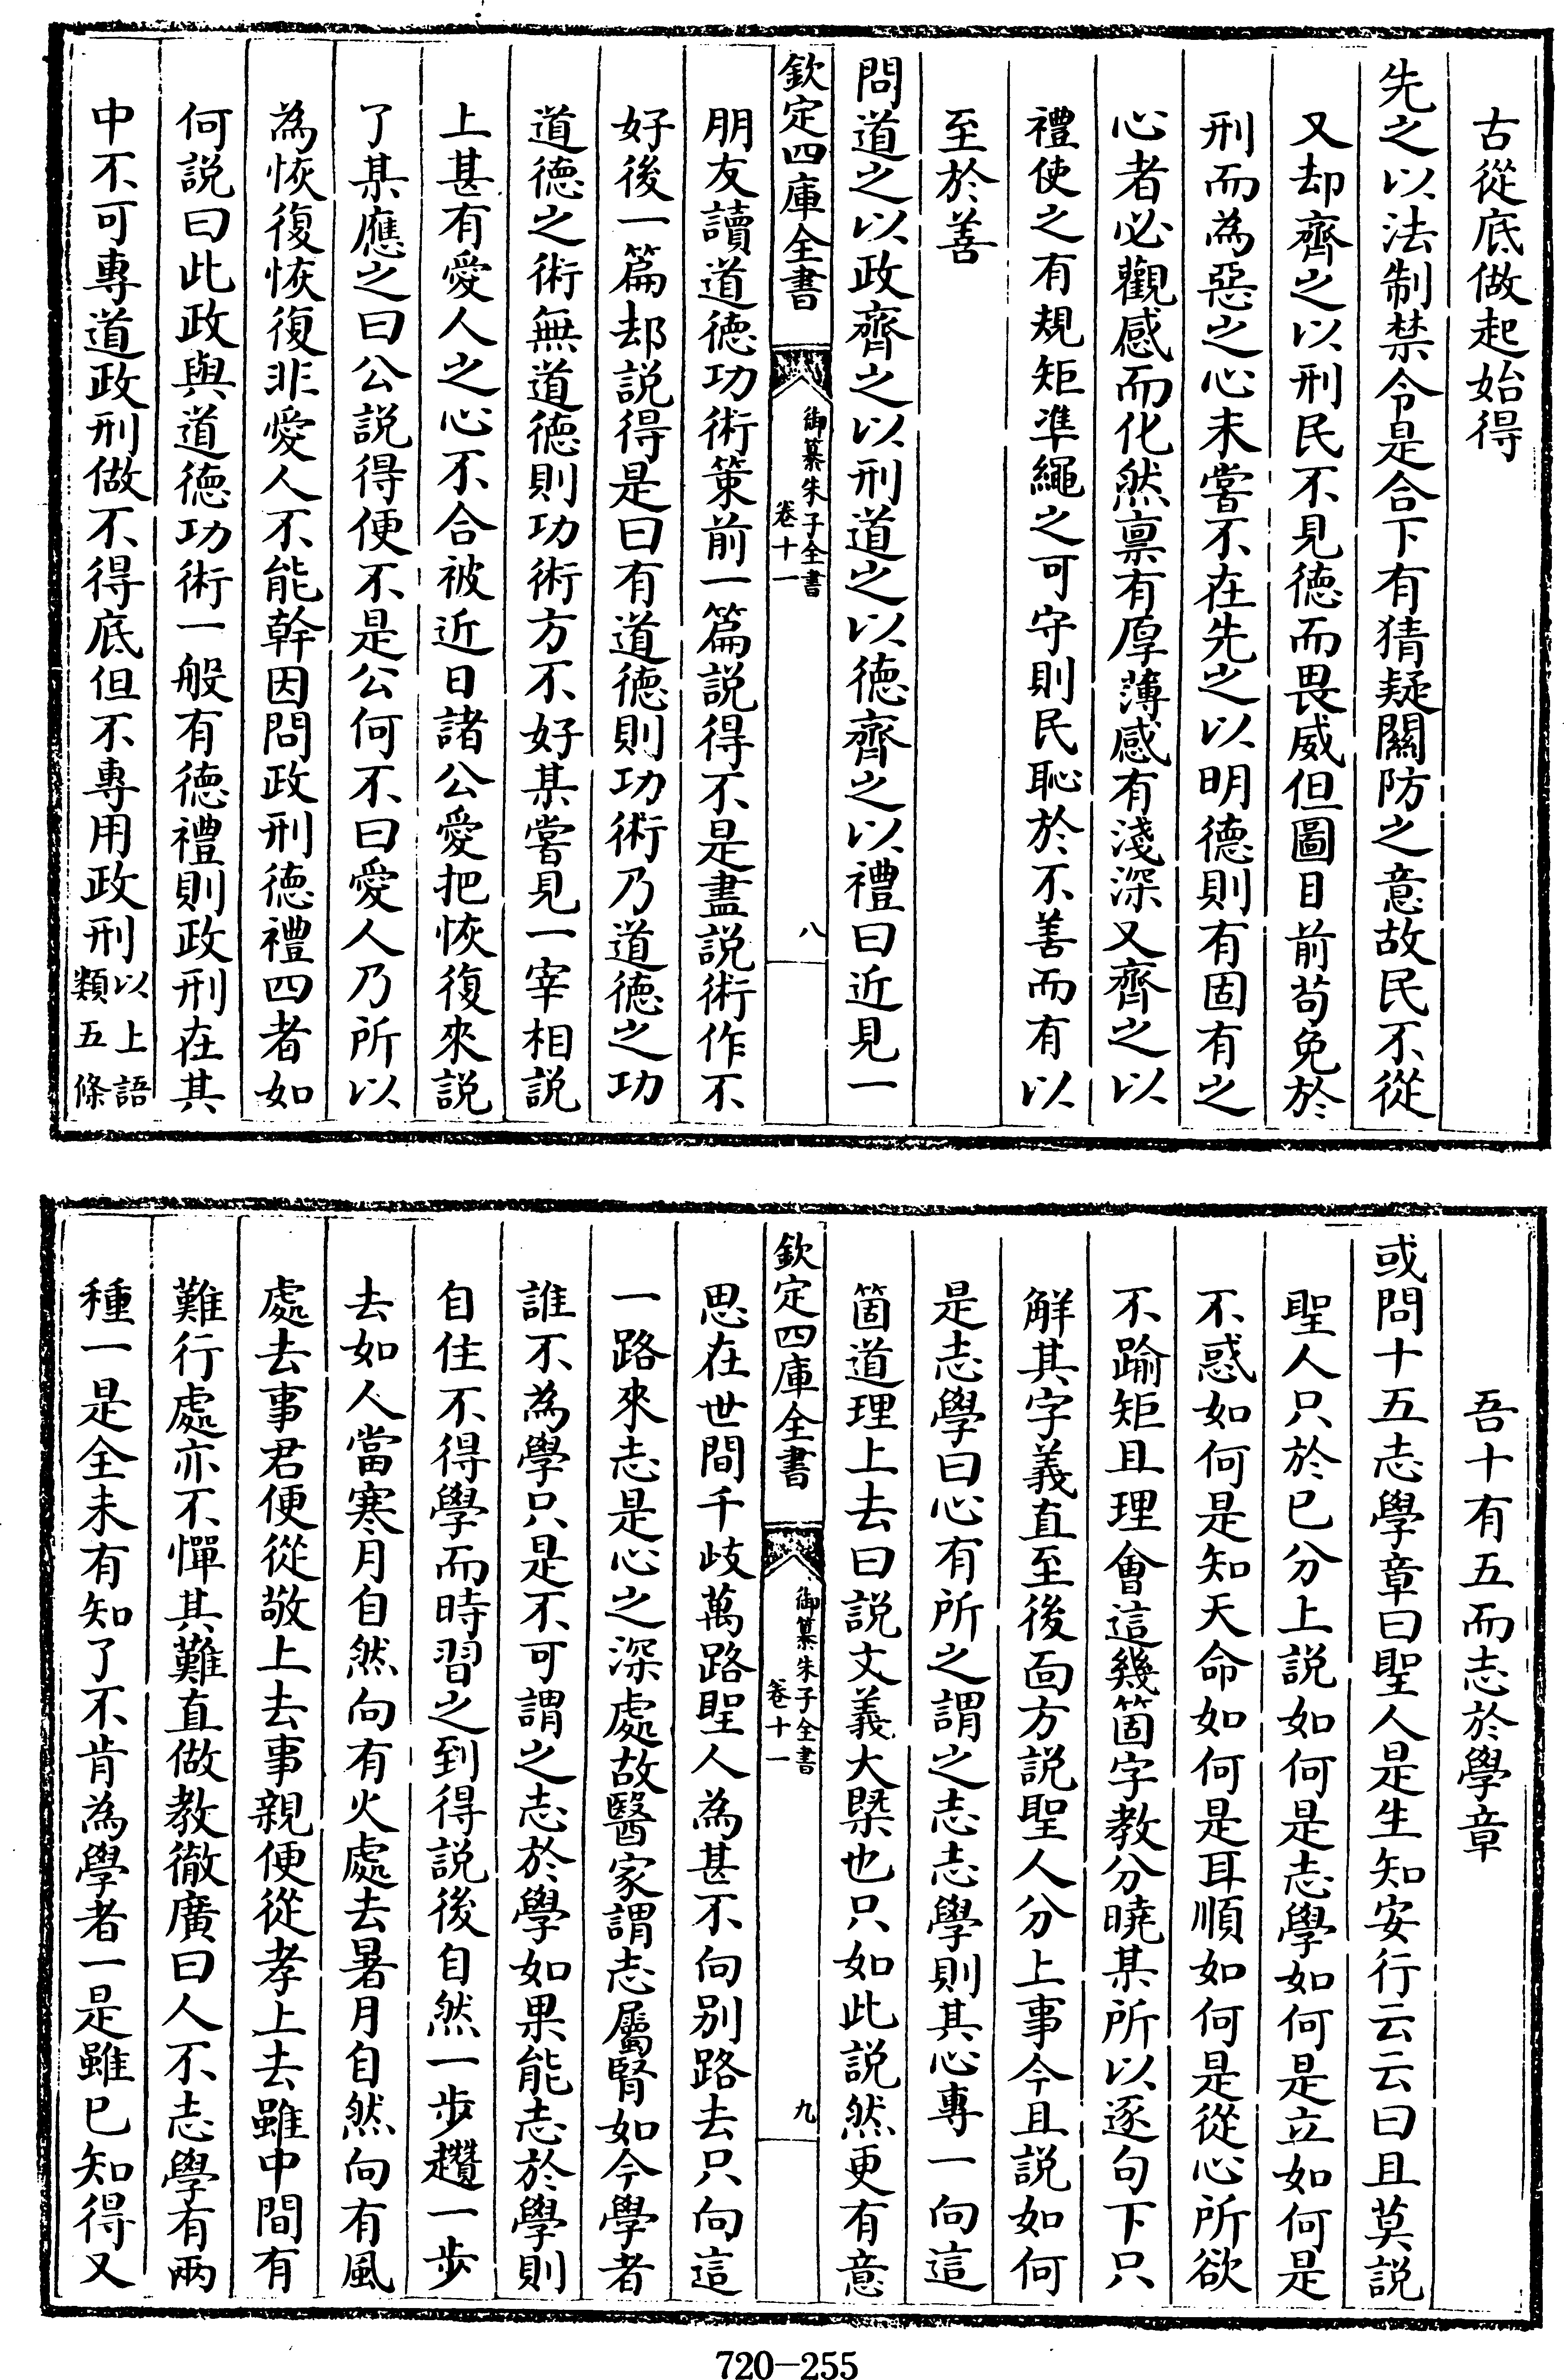 古從底做起始得
先之以法制禁令是合下有猜疑關防之意故民不從
又却齊之以刑民不見徳而畏威但圖目前苟免於
刑而為惡之心未嘗不在先之以明徳則有固有之
心者必觀感而化然禀有厚薄感有淺深又齊之以
禮使之有規矩凖繩之可守則民恥於不善而有以
至於善
問道之以政齊之以刑道之以徳齊之以禮曰近見一
欽定四庫全書
御纂朱子全書
卷十一
八
朋友讀道徳功術策前一篇説得不是盡説術作不
好後一篇却説得是曰有道徳則功術乃道徳之功
道徳之術無道徳則功術方不好某嘗見一宰相説
上甚有愛人之心不合被近日諸公愛把恢復來説
了某應之曰公説得便不是公何不曰愛人乃所以
為恢復恢復非愛人不能幹因問政刑徳禮四者如
何説曰此政與道徳功術一般有徳禮則政刑在其
中不可專道政刑做不得底但不專用政刑以上語
類五條
吾十有五而志於學章
或問十五志學章曰聖人是生知安行云云曰且莫説
聖人只於已分上説如何是志學如何是立如何是
不惑如何是知天命如何是耳順如何是從心所欲
不踰矩且理會這幾箇字教分曉某所以逐句下只
解其字義直至後面方説聖人分上事今且説如何
是志學曰心有所之謂之志志學則其心專一向這
箇道理上去曰説文義大槩也只如此説然更有意
欽定四庫全書
御纂朱子全書
卷十一
九
思在世間千歧萬路聖人為甚不向别路去只向這
一路來志是心之深處故醫家謂志屬腎如今學者
誰不為學只是不可謂之志於學如果能志於學則
自住不得學而時習之到得説後自然一步趲一步
去如人當寒月自然向有火處去暑月自然向有風
處去事君便從敬上去事親便從孝上去雖中間有
難行處亦不憚其難直做教徹廣曰人不志學有兩
種一是全未有知了不肯為學者一是雖已知得又
720-255